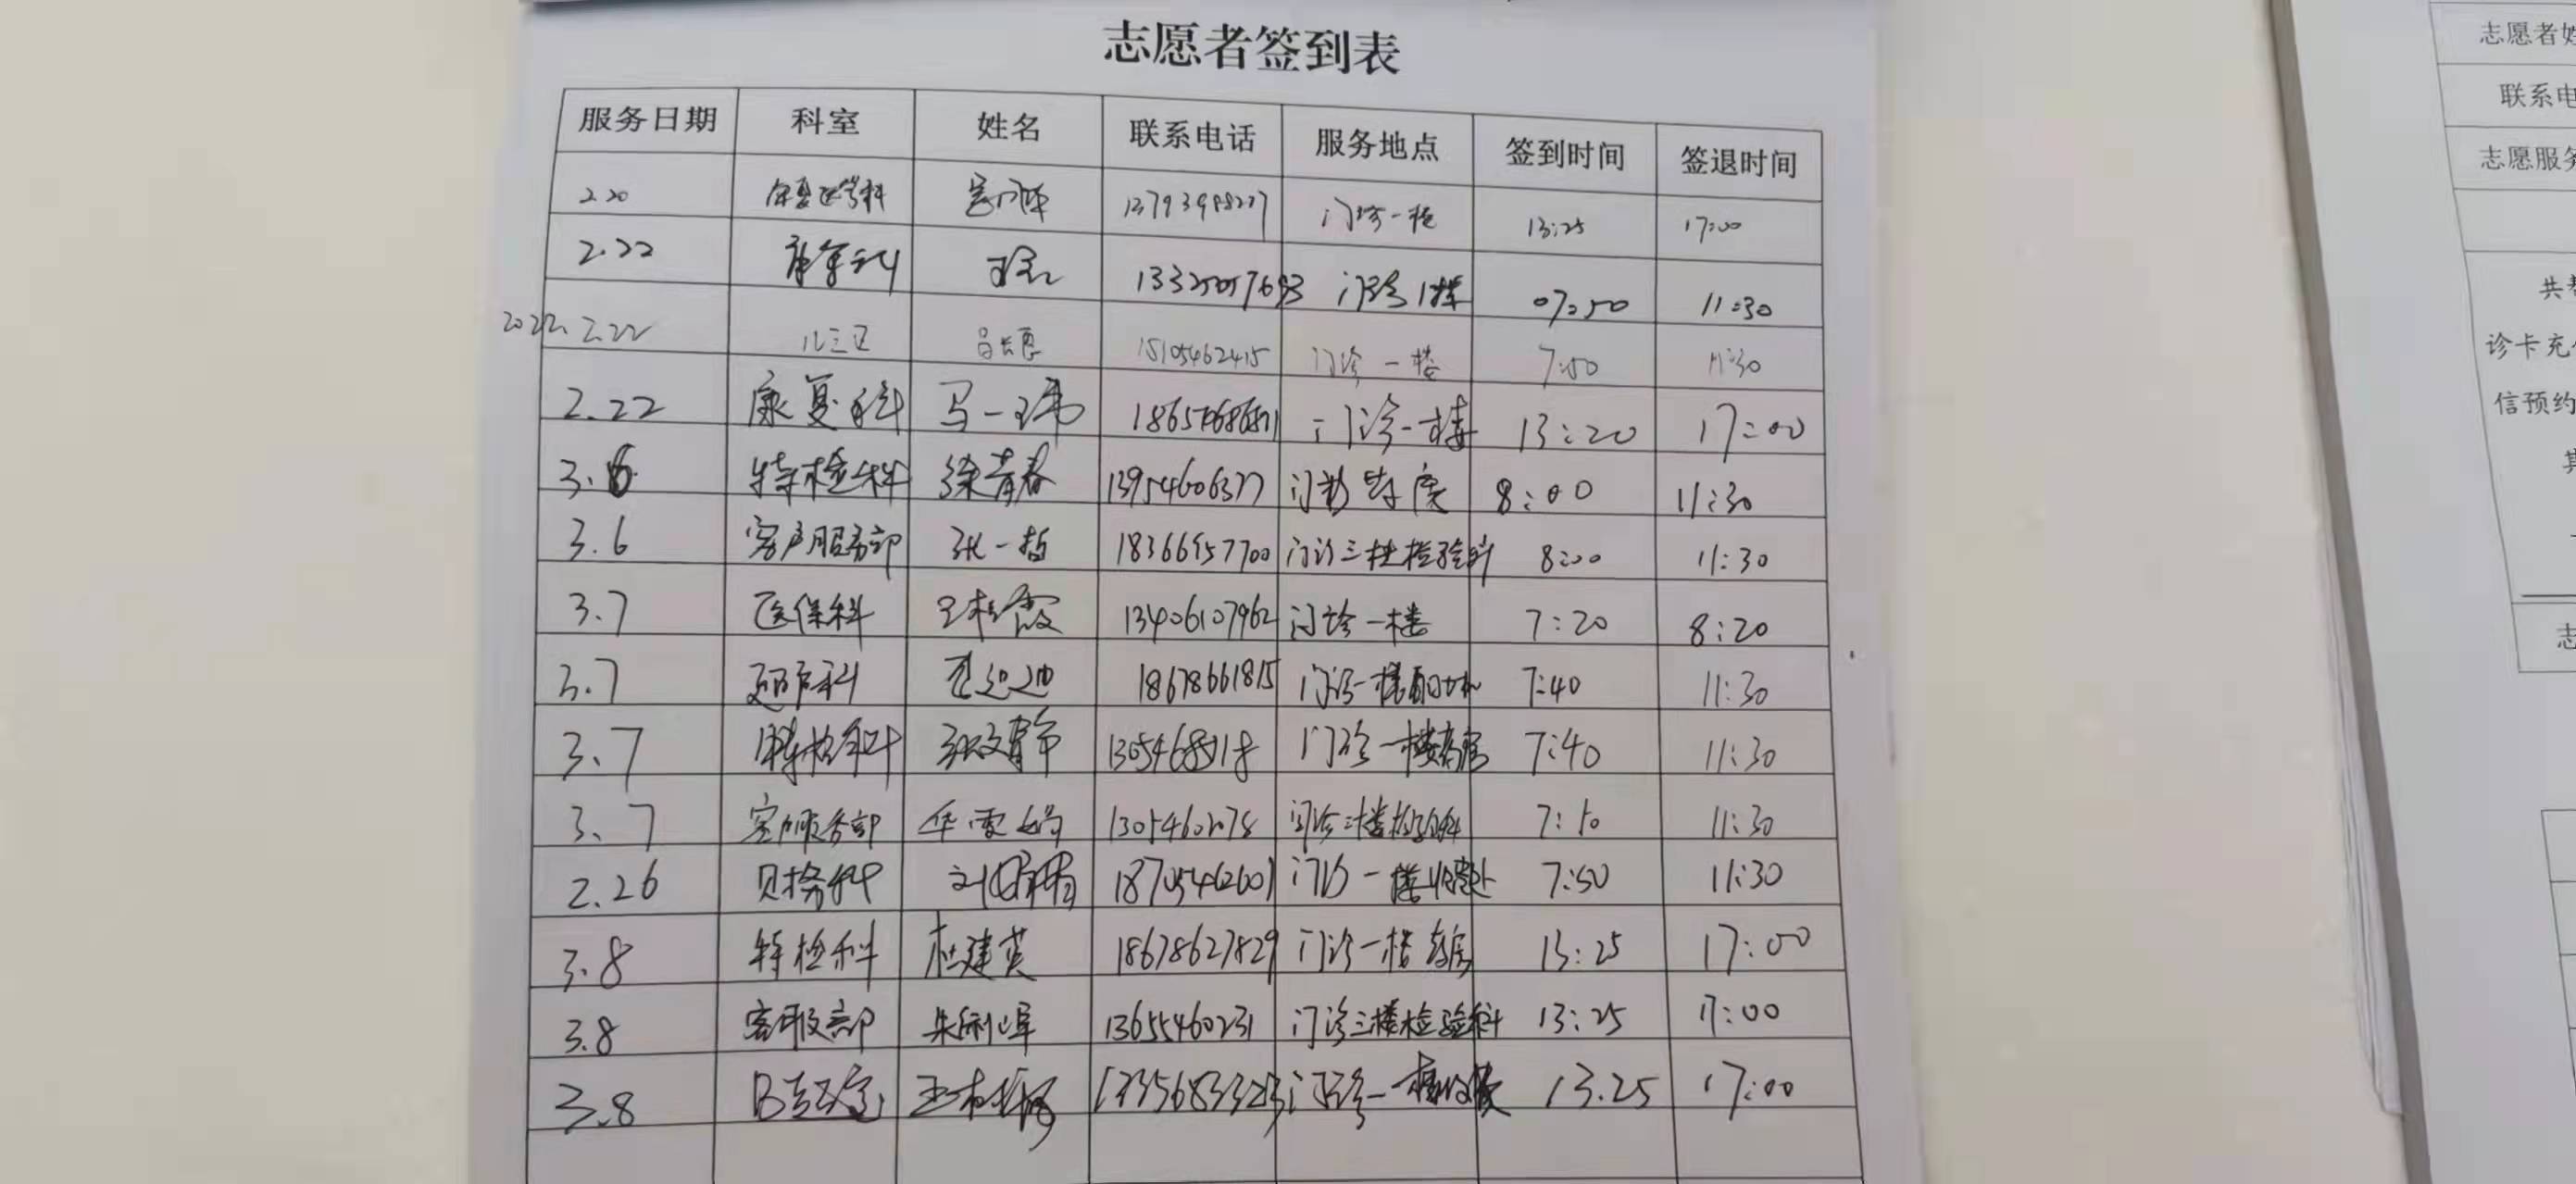 志愿者签到表
服务日期 科室 姓名 联系电话 服务地点 签到时间 签退时间
2.20 康复医学科 门诊一楼 13:25 17:00
2.22 门诊1楼 07:50 11:30
2022.2.22 儿三区 15105462415 门诊一楼 7:50 11:30
2.22 康复科 马一玮 门诊一楼 13:20 17:00
3.6 特检科 徐青春 13954606377 8:00 11:30
3.6 客户服务部 张一哲 18366957700 门诊三楼检验科 8:00 11:30
3.7 医保科 王桂霞 13406107962 门诊一楼 7:20 8:20
3.7 18678661815 门诊一楼 7:40 11:30
3.7 特检科 张文静 门诊一楼药房 7:40 11:30
3.7 客户服务部 门诊三楼检验科 7:50 11:30
2.26 财务科 18705462601 门诊一楼收费处 7:50 11:30
3.8 特检科 杜建英 18678627829 门诊一楼药房 13:25 17:00
3.8 客服部 13655460231 门诊三楼检验科 13:25 17:00
3.8 B超室 门诊一楼收费 13.25 17:00
志愿者姓
联系电
志愿服务
诊卡充
信预约